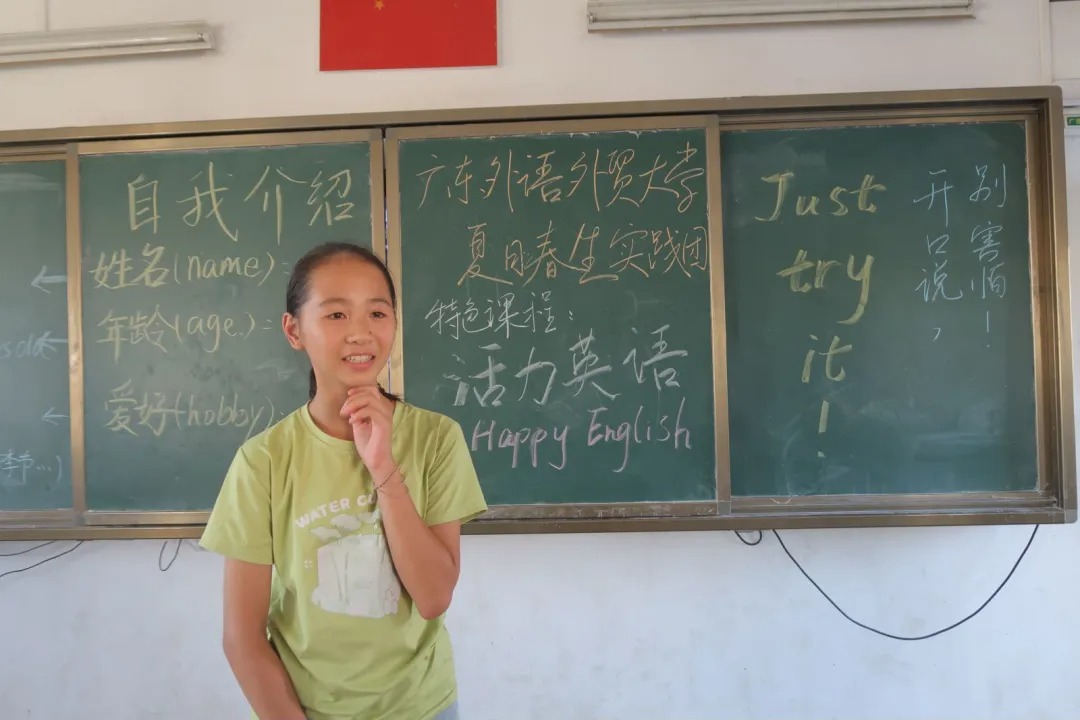 自我介绍
姓名(name):
年龄(age):
爱好(hobby):
广东外语外贸大学
夏日春生实践团
特色课程:
活力英语
Happy English
Just
try
it
!
别害怕!
开口说,
WATER